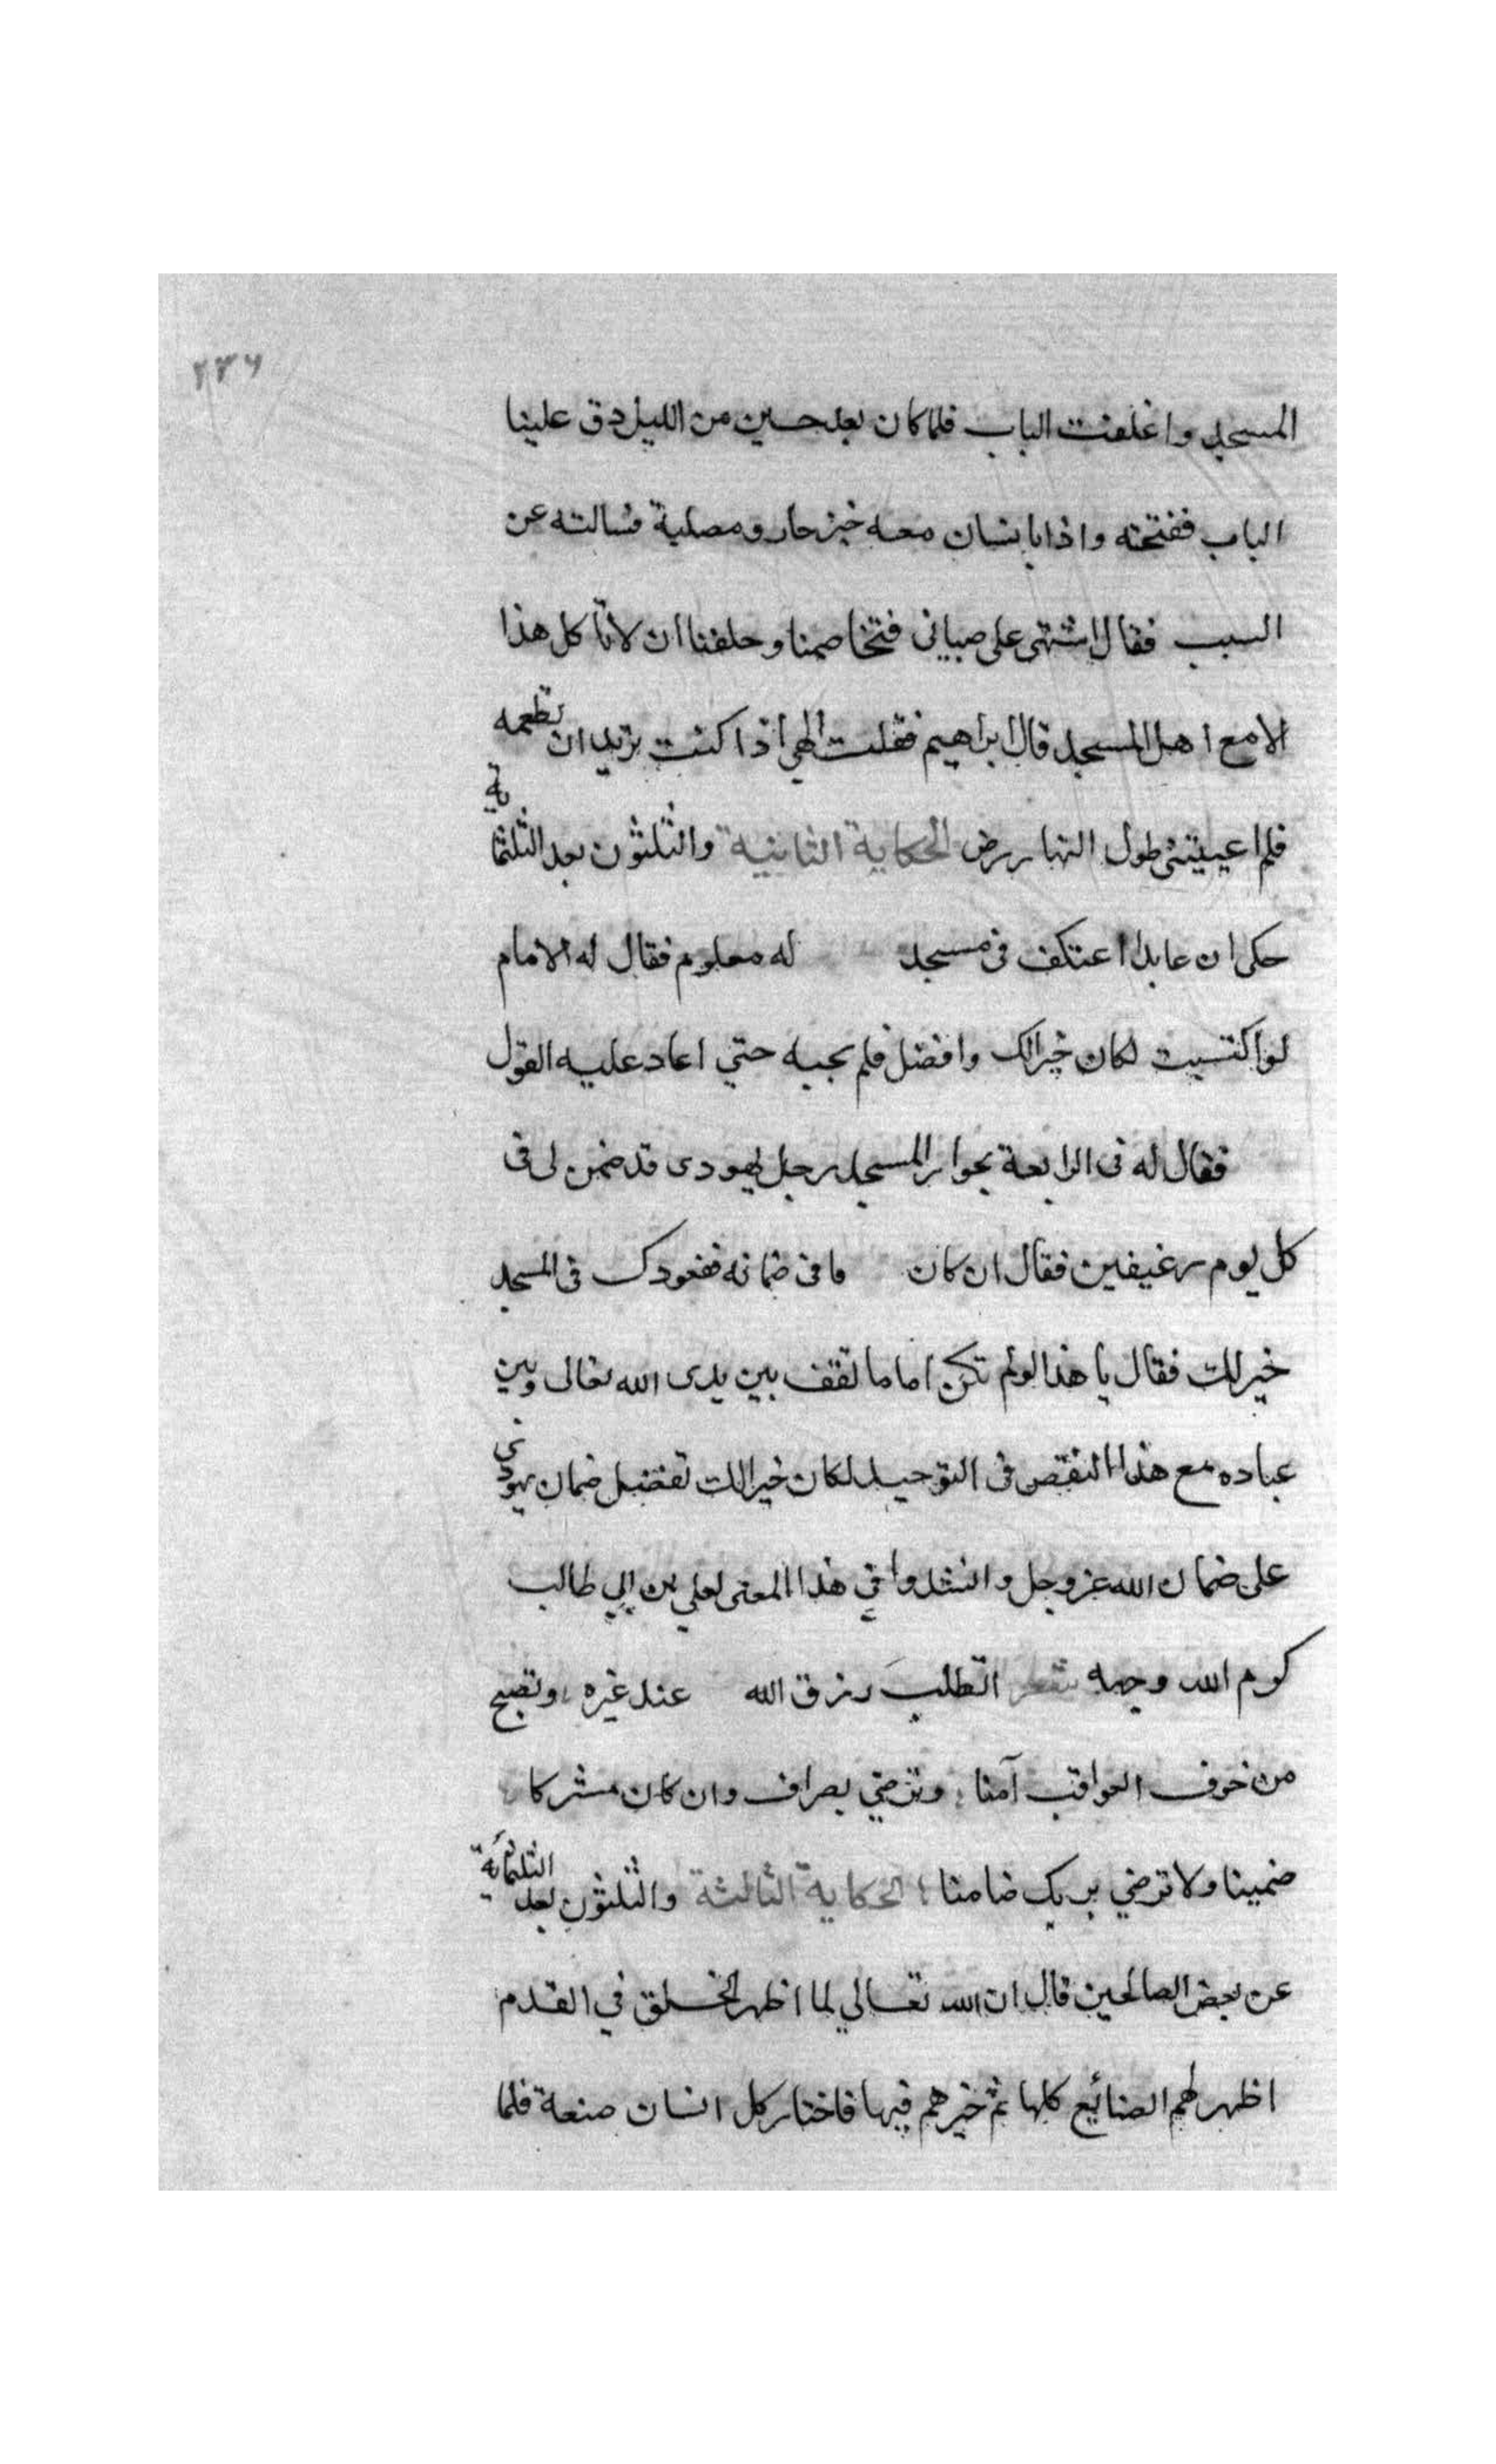 ٢٣٦
المسجد واغلقت الباب فلما كان بعد حسين من الليل دق علينا
الباب ففتحته واذا بانسان معه خبز حار ومصلية فسالته عن
السبب فقال اشتهى على صبياني فتخاصمنا وحلفنا ان لا ناكل هذا
الا مع اهل المسجد قال ابراهيم فقلت الهي اذا كنت تريد ان تطعمه
فلم اعييتني طول النهار رض الحكاية الثانية والثلثون بعد الثلثماية
حكى ان عابدا اعتكف فى مسجد له معلوم فقال له الامام
لو اكتسبت لكان خيرا لك وافضل فلم يجبه حتي اعاد عليه القول
فقال له فى الرابعة بجوار المسجد رجل يهودى قد ضمن لى فى
كل يوم رغيفين فقال ان كان ما فى ضمانه فقعودك فى المسجد
خير لك فقال يا هذا لو لم تكن اماما تقف بين يدى الله تعالى وبين
عباده مع هذا النقص فى التوحيد لكان خيرا لك تفضيل ضمان يهودى
على ضمان الله عز وجل وانشدوا في هذا المعنى لعلي بن ابي طالب
كرم الله وجهه شعر اتطلب رزق الله عند غيره وتصبح
من خوف العواقب آمنا وترضي بصراف وان كان مشركا
ضمينا ولا ترضي بربك ضامنا الحكاية الثالثة والثلثون بعد الثلثمائة
عن بعض الصالحين قال ان الله تعالي لما اظهر الخلق في القدم
اظهر لهم الصنائع كلها ثم خيرهم فيها فاختار كل انسان صنعة فلما